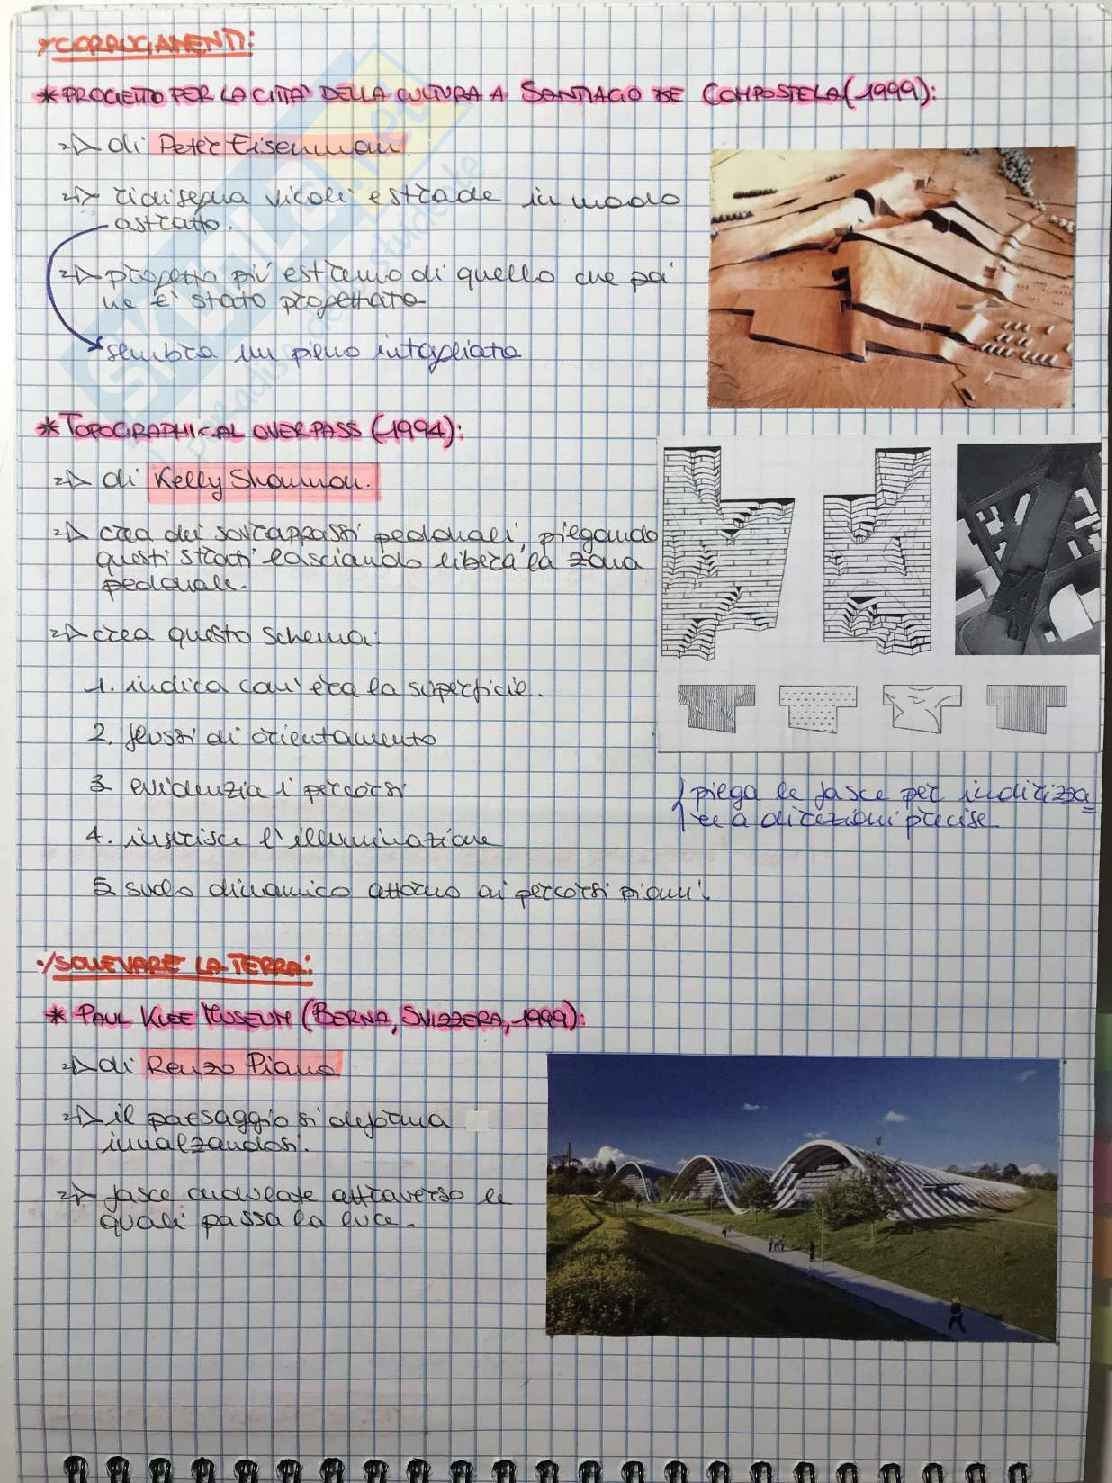 CORRUGAMENTI:
* PROGETTO PER LA CITTA' DELLA CULTURA A SANTIAGO DE COMPOSTELA (1999):
di Peter Eisenman
ridisegna vicoli e strade in modo
astratto.
progetto più estremo di quello che poi
ne è stato progettato
sembra un pieno intagliato
* TOPOGRAPHICAL OVERPASS (1994):
di Kelly Shannon.
crea dei sovrappassi pedonali, piegando
questi strati lasciando libera la zona
pedonale.
crea questo schema:
1. indica com'era la superficie.
2. flussi di orientamento
3 evidenzia i percorsi
4. inserisce l'illuminazione
5 suolo dinamico attorno ai percorsi piani.
piega le fasce per indirizza=
re a direzioni precise
SOLLEVARE LA TERRA:
* PAUL KLEE MUSEUM (BERNA, SVIZZERA, 1999):
di Renzo Piano
il paesaggio si deforma
innalzandosi.
fasce ondulate attraverso le
quali passa la luce.